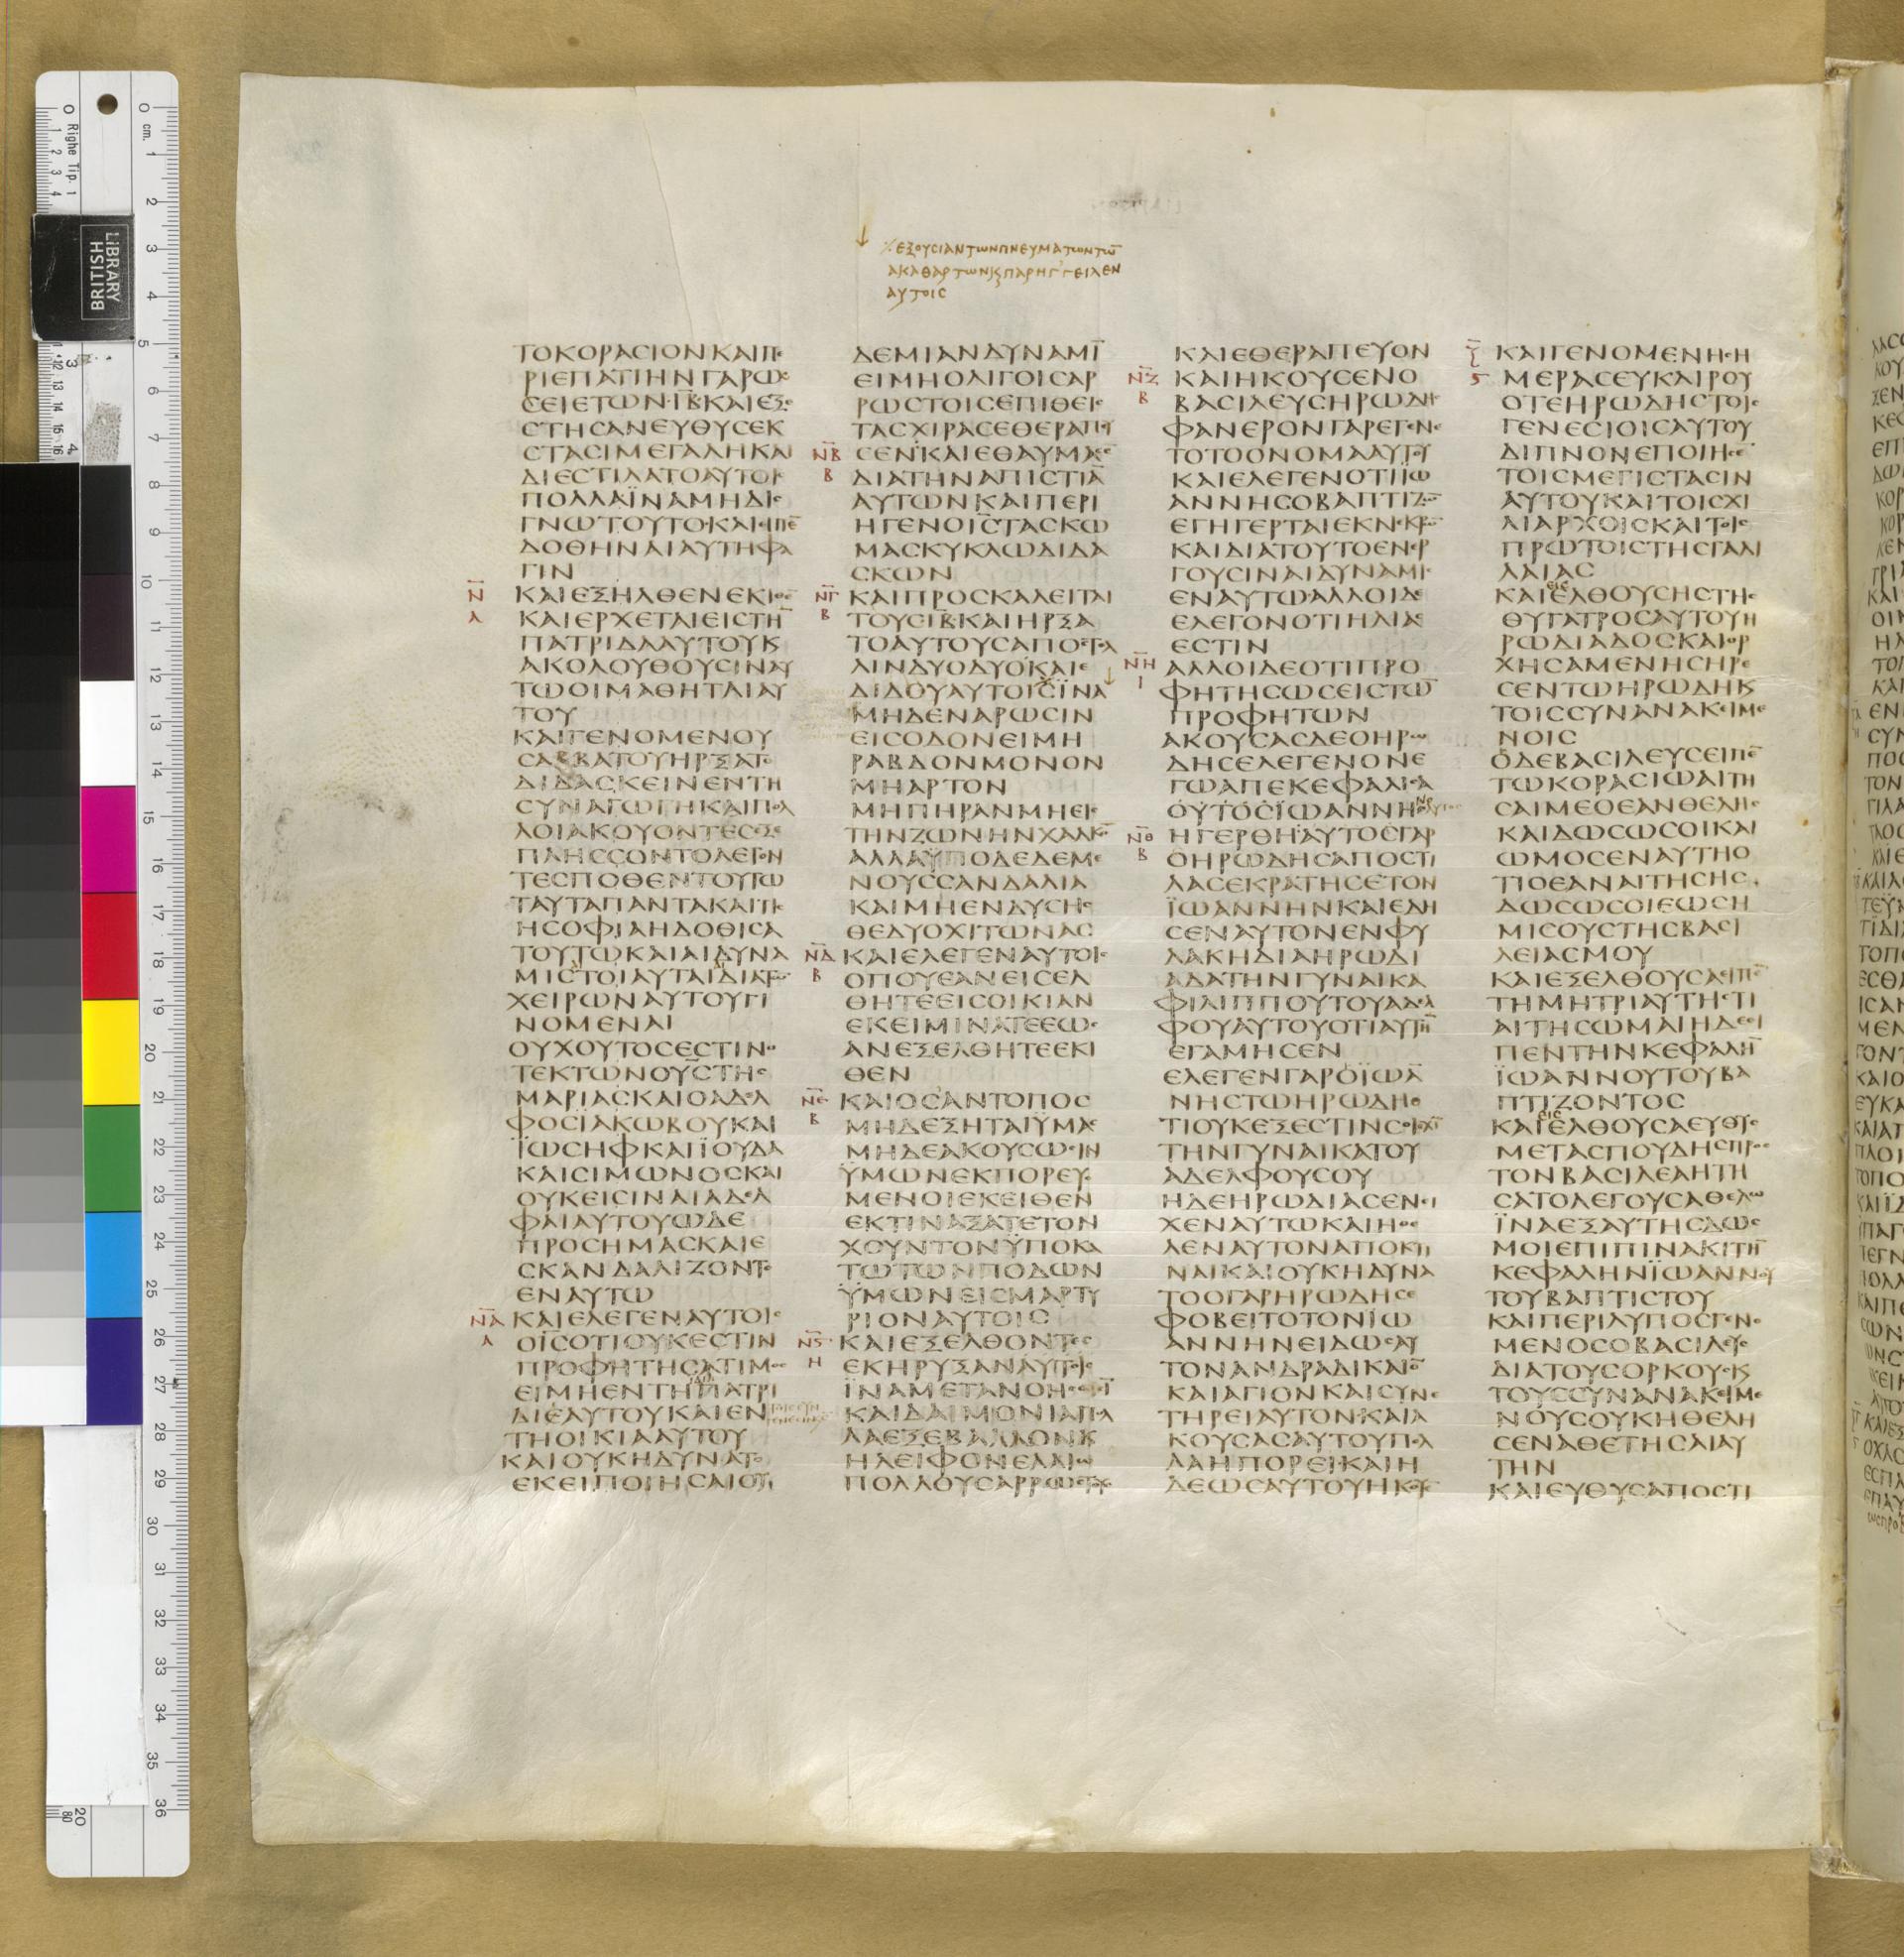 ٪ ΕΞΟΥCΙΑΝΤΩΝΠΝΕΥΜΑΤΩΝΤΩ̅
ΑΚΑΘΑΡΤΩΝΚϚΠΑΡΗΓΓΕΙΛΕΝ
ΑΥΤΟΙC
ΤΟΚΟΡΑCΙΟΝΚΑΙΠΕ
ΡΙΕΠΑΤΙΗΝΓΑΡΩ
CΕΙΕΤΩΝ·ΙΒ̅ΚΑΙΕΞΕ
CΤΗCΑΝΕΥΘΥCΕΚ
CΤΑCΙΜΕΓΑΛΗΚΑΙ
ΔΙΕCΤΙΛΑΤΟΑΥΤΟΙC
ΠΟΛΛΑΪΝΑΜΗΔΙC
ΓΝΩΤΟΥΤΟΚΑΙΕΙΠΕ̅
ΔΟΘΗΝΑΙΑΥΤΗΦΑ
ΓΙΝ
Ν̅
Α
ΚΑΙΕΞΗΛΘΕΝΕΚΙΘΕ̅
ΚΑΙΕΡΧΕΤΑΙΕΙCΤΗ̅
ΠΑΤΡΙΔΑΑΥΤΟΥΚ
ΑΚΟΛΟΥΘΟΥCΙΝΑΥ
ΤΩΟΙΜΑΘΗΤΑΙΑΥ
ΤΟΥ
ΚΑΙΓΕΝΟΜΕΝΟΥ
CΑΒΒΑΤΟΥΗΡΞΑΤΟ
ΔΙΔΑCΚΕΙΝΕΝΤΗ
CΥΝΑΓΩΓΗΚΑΙΠΟΛ
ΛΟΙΑΚΟΥΟΝΤΕCΕΞΕ
ΠΛΗCCΟΝΤΟΛΕΓΟΝ
ΤΕCΠΟΘΕΝΤΟΥΤΩ
ΤΑΥΤΑΠΑΝΤΑΚΑΙΤΙC
ΗCΟΦΙΑΗΔΟΘΙCΑ
ΤΟΥΤΩΚΑΙΑΙΔΥΝΑ
ΜΙCΤΟΙΑΥΤΑΙΔΙΑΤΩ̅
ΧΕΙΡΩΝΑΥΤΟΥΓΙ
ΝΟΜΕΝΑΙ
ΟΥΧΟΥΤΟCΕCΤΙΝΟ
ΤΕΚΤΩΝΟΥC̅ΤΗC
ΜΑΡΙΑCΚΑΙΟΑΔΕΛ
ΦΟCΪΑΚΩΒΟΥΚΑΙ
ΪΩCΗΦΚΑΙΪΟΥΔΑ
ΚΑΙCΙΜΩΝΟCΚΑΙ
ΟΥΚΕΙCΙΝΑΙΑΔΕΛ
ΦΑΙΑΥΤΟΥΩΔΕ
ΠΡΟCΗΜΑCΚΑΙΕ
CΚΑΝΔΑΛΙΖΟΝΤΟ
ΕΝΑΥΤΩ
Ν̅Α̅
Α
ΚΑΙΕΛΕΓΕΝΑΥΤΟΙC
ΟΙ̅CΟΤΙΟΥΚΕCΤΙΝ
ΠΡΟΦΗΤΗCΑΤΙΜΟC
ΕΙΜΗΕΝΤΗΠΑΤΡΙ
ΔΙΕΑΥΤΟΥΚΑΙΕΝ
ΤΗΟΙΚΙΑΑΥΤΟΥ
ΚΑΙΟΥΚΗΔΥΝΑΤΟ
ΕΚΕΙΠΟΙΗCΑΙΟΥ
ΔΕΜΙΑΝΔΥΝΑΜΙ̅
ΕΙΜΗΟΛΙΓΟΙCΑΡ
ΡΩCΤΟΙCΕΠΙΘΕΙC
ΤΑCΧΙΡΑCΕΘΕΡΑΠΕΥ
Ν̅Β̅
Β
CΕΝΚΑΙΕΘΑΥΜΑCΕ̅
ΔΙΑΤΗΝΑΠΙCΤΙΑ̅
ΑΥΤΩΝΚΑΙΠΕΡΙ
ΗΓΕΝΟΙ̅CΤΑCΚΩ
ΜΑCΚΥΚΛΩΔΙΔΑ
CΚΩΝ
Ν̅Γ̅
Β
ΚΑΙΠΡΟCΚΑΛΕΙΤΑΙ
ΤΟΥCΙΒ̅ΚΑΙΗΡΞΑ
ΤΟΑΥΤΟΥCΑΠΟCΤΕΛ
ΛΙΝΔΥΟΔΥΟΚΑΙΕ
ΔΙΔΟΥΑΥΤΟΙCΪΝΑ
ΜΗΔΕΝΑΡΩCΙΝ
ΕΙCΟΔΟΝΕΙΜΗ
ΡΑΒΔΟΝΜΟΝΟΝ
ΜΗΑΡΤΟΝ
ΜΗΠΗΡΑΝΜΗΕΙC
ΤΗΝΖΩΝΗΝΧΑΛΚΟ̅
ΑΛΛΑΫΠΟΔΕΔΕΜΕ
ΝΟΥCCΑΝΔΑΛΙΑ
ΚΑΙΜΗΕΝΔΥCΗCΘΕ
ΘΕΔΥΟΧΙΤΩΝΑC
Ν̅Δ̅
Β
ΚΑΙΕΛΕΓΕΝΑΥΤΟΙC
ΟΠΟΥΕΑΝΕΙCΕΛ
ΘΗΤΕΕΙCΟΙΚΙΑΝ
ΕΚΕΙΜΙΝΑΤΕΕΩC
ΑΝΕΞΕΛΘΗΤΕΕΚΙ
ΘΕΝ
Ν̅Ε̅
Β
ΚΑΙΟCΑΝΤΟΠΟC
ΜΗΔΕΞΗΤΑΙΫΜΑC
ΜΗΔΕΑΚΟΥCΩCΙΝ
ΫΜΩΝΕΚΠΟΡΕΥΟ
ΜΕΝΟΙΕΚΕΙΘΕΝ
ΕΚΤΙΝΑΞΑΤΕΤΟΝ
ΧΟΥΝΤΟΝΫΠΟΚΑ
ΤΩΤΩΝΠΟΔΩΝ
ΫΜΩΝΕΙCΜΑΡΤΥ
ΡΙΟΝΑΥΤΟΙC
Ν̅Ϛ̅
Η
ΚΑΙΕΞΕΛΘΟΝΤΕC
ΕΚΗΡΥΞΑΝΑΥΤΟΙC
ΪΝΑΜΕΤΑΝΟΗCΩCΙ̅
ΚΑΙΔΑΙΜΟΝΙΑΠΟΛ
ΛΑΕΞΕΒΑΛΛΟΝΚ
ΗΛΕΙΦΟΝΕΛΑΙΩ
ΠΟΛΛΟΥCΑΡΡΩCΤΟΥC
ΚΑΙΕΘΕΡΑΠΕΥΟΝ
Ν̅Ζ̅
Β
ΚΑΙΗΚΟΥCΕΝΟ
ΒΑCΙΛΕΥCΗΡΩΔΗC
ΦΑΝΕΡΟΝΓΑΡΕΓΕΝΕ
ΤΟΤΟΟΝΟΜΑΑΥΤΟΥ
ΚΑΙΕΛΕΓΕΝΟΤΙΪΩ
ΑΝΝΗCΟΒΑΠΤΙΖΩ̅
ΕΓΗΓΕΡΤΑΙΕΚΝΕΚΡΩ̅
ΚΑΙΔΙΑΤΟΥΤΟΕΝΕΡ
ΓΟΥCΙΝΑΙΔΥΝΑΜΙC
ΕΝΑΥΤΩΑΛΛΟΙΔΕ
ΕΛΕΓΟΝΟΤΙΗΛΙΑC
ΕCΤΙΝ
Ν̅Η̅
Ι
ΑΛΛΟΙΔΕΟΤΙΠΡΟ
ΦΗΤΗCΩCΕΙCΤΩ̅
ΠΡΟΦΗΤΩΝ
ΑΚΟΥCΑCΔΕΟΗΡΩ
ΔΗCΕΛΕΓΕΝΟΝΕ
ΓΩΑΠΕΚΕΦΑΛΙCΑ
ΟΥΤΟCΪΩΑΝΝΗC
Ν̅Θ̅
Β
ΗΓΕΡΘΗΑΥΤΟCΓΑΡ
ΟΗΡΩΔΗCΑΠΟCΤΙ
ΛΑCΕΚΡΑΤΗCΕΤΟΝ
ΪΩΑΝΝΗΝΚΑΙΕΔΗ
CΕΝΑΥΤΟΝΕΝΦΥ
ΛΑΚΗΔΙΑΗΡΩΔΙ
ΑΔΑΤΗΝΓΥΝΑΙΚΑ
ΦΙΛΙΠΠΟΥΤΟΥΑΔΕΛ
ΦΟΥΑΥΤΟΥΟΤΙΑΥΤΗ̅
ΕΓΑΜΗCΕΝ
ΕΛΕΓΕΝΓΑΡΟΪΩΑ̅
ΝΗCΤΩΗΡΩΔΗΟ
ΤΙΟΥΚΕΞΕCΤΙΝCΟΙΕΧΙ̅
ΤΗΝΓΥΝΑΙΚΑΤΟΥ
ΑΔΕΛΦΟΥCΟΥ
ΗΔΕΗΡΩΔΙΑCΕΝΕΙ
ΧΕΝΑΥΤΩΚΑΙΗΘΕ
ΛΕΝΑΥΤΟΝΑΠΟΚΤΙ
ΝΑΙΚΑΙΟΥΚΗΔΥΝΑ
ΤΟΟΓΑΡΗΡΩΔΗCΕ
ΦΟΒΕΙΤΟΤΟΝΪΩ
ΑΝΝΗΝΕΙΔΩCΑΥ
ΤΟΝΑΝΔΡΑΔΙΚΑΙΟ̅
ΚΑΙΑΓΙΟΝΚΑΙCΥΝΕ
ΤΗΡΕΙΑΥΤΟΝΚΑΙΑ
ΚΟΥCΑCΑΥΤΟΥΠΟΛ
ΛΑΗΠΟΡΕΙΚΑΙΗ
ΔΕΩCΑΥΤΟΥΗΚΟΥΕ
Ξ̅
Ϛ
ΚΑΙΓΕΝΟΜΕΝΗCΗ
ΜΕΡΑCΕΥΚΑΙΡΟΥ
ΟΤΕΗΡΩΔΗCΤΟΙC
ΓΕΝΕCΙΟΙCΑΥΤΟΥ
ΔΙΠΝΟΝΕΠΟΙΗCΕ̅
ΤΟΙCΜΕΓΙCΤΑCΙΝ
ΑΥΤΟΥΚΑΙΤΟΙCΧΙ
ΛΙΑΡΧΟΙCΚΑΙΤΟΙC
ΠΡΩΤΟΙCΤΗCΓΑΛΙ
ΛΑΙΑC
ΕΙC
ΚΑΙΕΛΘΟΥCΗCΤΗC
ΘΥΓΑΤΡΟCΑΥΤΟΥΗ
ΡΩΔΙΑΔΟCΚΑΙΟΡ
ΧΗCΑΜΕΝΗCΗΡΕ
CΕΝΤΩΗΡΩΔΗΚ
ΤΟΙCCΥΝΑΝΑΚΕΙΜΕ
ΝΟΙC
ΟΔΕΒΑCΙΛΕΥCΕΙΠΕ̅
ΤΩΚΟΡΑCΙΩΑΙΤΗ
CΑΙΜΕΟΕΑΝΘΕΛΗC
ΚΑΙΔΩCΩCΟΙΚΑΙ
ΩΜΟCΕΝΑΥΤΗΟ
ΤΙΟΕΑΝΑΙΤΗCΗC
ΔΩCΩCΟΙΕΩCΗ
ΜΙCΟΥCΤΗCΒΑCΙ
ΛΕΙΑCΜΟΥ
ΚΑΙΕΞΕΛΘΟΥCΑΕΙΠΕ̅
ΤΗΜΗΤΡΙΑΥΤΗCΤΙ
ΑΙΤΗCΩΜΑΙΗΔΕΕΙ
ΠΕΝΤΗΝΚΕΦΑΛΗ̅
ΪΩΑΝΝΟΥΤΟΥΒΑ
ΠΤΙΖΟΝΤΟC
ΕΙC
ΚΑΙΕΛΘΟΥCΑΕΥΘΥC
ΜΕΤΑCΠΟΥΔΗCΠΡΟC
ΤΟΝΒΑCΙΛΕΑΗΤΗ
CΑΤΟΛΕΓΟΥCΑΘΕΛΩ
ΪΝΑΕΞΑΥΤΗCΔΩC
ΜΟΙΕΠΙΠΙΝΑΚΙΤΗ̅
ΚΕΦΑΛΗΝΪΩΑΝΝΟΥ
ΤΟΥΒΑΠΤΙCΤΟΥ
ΚΑΙΠΕΡΙΛΥΠΟCΓΕΝΟ
ΜΕΝΟCΟΒΑCΙΛΕΥC
ΔΙΑΤΟΥCΟΡΚΟΥCΚ
ΤΟΥCCΥΝΑΝΑΚΕΙΜΕ
ΝΟΥCΟΥΚΗΘΕΛΗ
CΕΝΑΘΕΤΗCΑΙΑΥ
ΤΗΝ
ΚΑΙΕΥΘΥCΑΠΟCΤΙ
BRITISH
LIBRARY
Righe Tip. 1
cm.